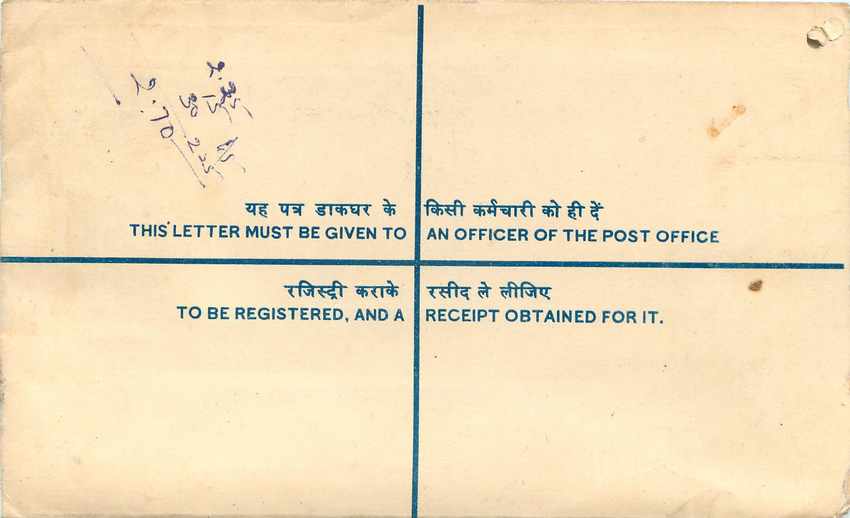 2.70
यह पत्र डाकघर के किसी कर्मचारी को ही दें
THIS LETTER MUST BE GIVEN TO AN OFFICER OF THE POST OFFICE
रजिस्ट्री कराके रसीद ले लीजिए
TO BE REGISTERED, AND A RECEIPT OBTAINED FOR IT.